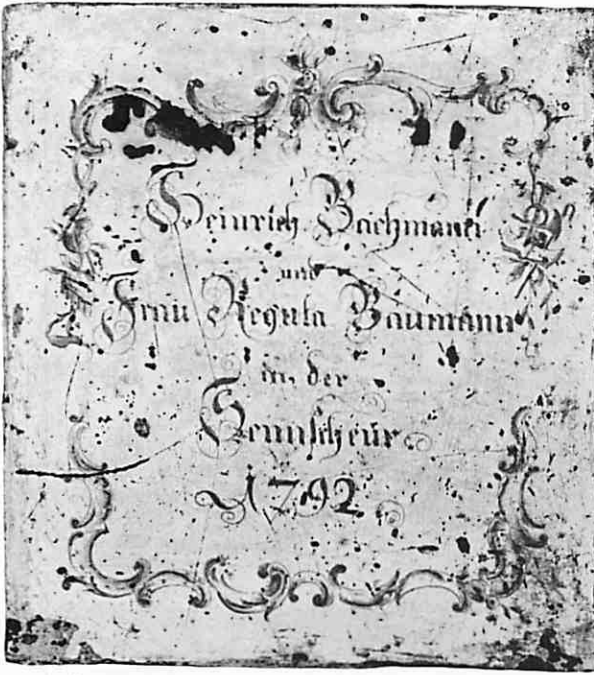 Heinrich Bachmann
und
Frau Regula Baumann
in der
Sennscheür
1792